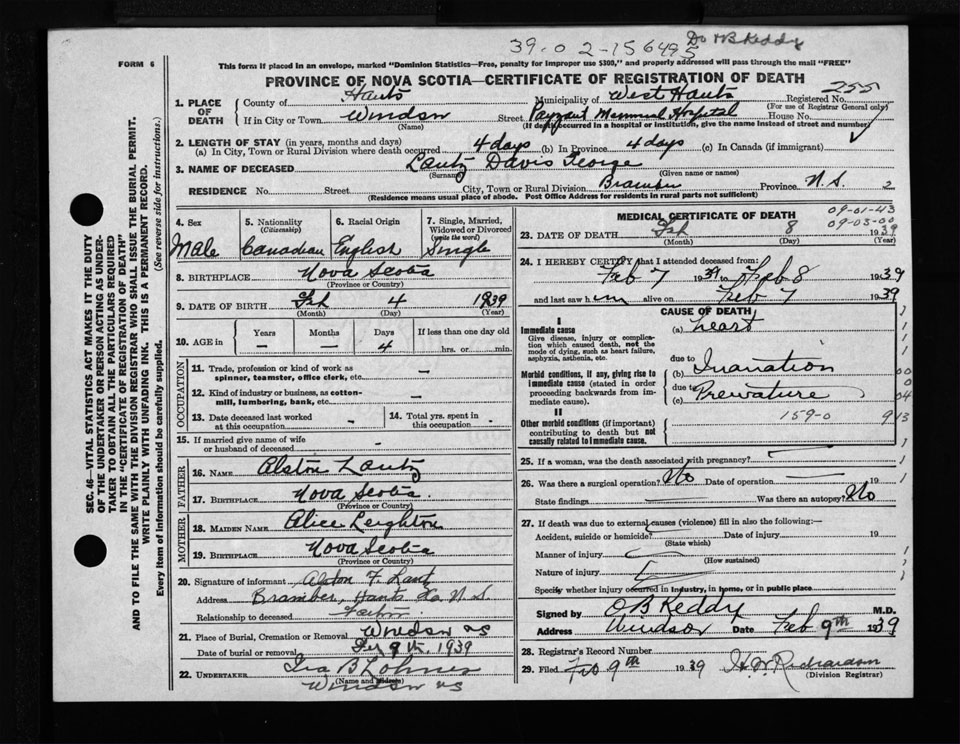 39-02-156495 Dr OB Reddy
FORM 6
This form if placed in an envelope, marked "Dominion Statistics—Free, penalty for improper use $300," and properly addressed will pass through the mail "FREE"
PROVINCE OF NOVA SCOTIA—CERTIFICATE OF REGISTRATION OF DEATH
255
1. PLACE OF DEATH County of Hants Municipality of West Hants Registered No.
(For use of Registrar General only)
If in City or Town Windsor Street Payzant Memorial Hospital House No.
(Name) (If death occurred in a hospital or institution, give the name instead of street and number)
2. LENGTH OF STAY (in years, months and days)
(a) In City, Town or Rural Division where death occurred 4 days (b) In Province 4 days (c) In Canada (if immigrant)
3. NAME OF DECEASED Lantz Davis George
(Surname) (Given name or names)
RESIDENCE No. Street City, Town or Rural Division Bramber Province N.S. 2
(Residence means usual place of abode. Post Office Address for residents in rural parts not sufficient)
4. Sex Male
5. Nationality (Citizenship) Canadian
6. Racial Origin English
7. Single, Married, Widowed or Divorced (write the word) Single
8. BIRTHPLACE Nova Scotia
(Province or Country)
9. DATE OF BIRTH Feb 4 1939
(Month) (Day) (Year)
10. AGE Years — Months — Days 4 If less than one day old hrs. or min.
OCCUPATION
11. Trade, profession or kind of work as spinner, teamster, office clerk, etc. —
12. Kind of industry or business, as cotton-mill, lumbering, bank, etc. —
13. Date deceased last worked at this occupation -
14. Total yrs. spent in this occupation -
15. If married give name of wife or husband of deceased -
FATHER
16. NAME Alston Lantz
17. BIRTHPLACE Nova Scotia.
(Province or Country)
MOTHER
18. MAIDEN NAME Alice Leighton
19. BIRTHPLACE Nova Scotia
(Province or Country)
20. Signature of informant Alston F. Lantz
Address Bramber, Hants Co. N.S.
Relationship to deceased Father
21. Place of Burial, Cremation or Removal Windsor NS
Date of burial or removal Feb 9th, 1939
22. UNDERTAKER Ira B Lohnes
(Name and Address)
Windsor NS
MEDICAL CERTIFICATE OF DEATH
09-01-43
09-03-00
23. DATE OF DEATH Feb 8 1939
(Month) (Day) (Year)
24. I HEREBY CERTIFY that I attended deceased from:
Feb 7 1939 to Feb 8 1939
and last saw him alive on Feb 7 1939
CAUSE OF DEATH
I
Immediate cause (a) heart
Give disease, injury or complication which caused death, not the mode of dying, such as heart failure, asphyxia, asthenia, etc.
due to
Morbid conditions, if any, giving rise to immediate cause (stated in order proceeding backwards from immediate cause).
(b) Inanation
due to
(c) Premature
II
Other morbid conditions (if important) contributing to death but not causally related to immediate cause.
159-0
25. If a woman, was the death associated with pregnancy? —
26. Was there a surgical operation? No Date of operation — 19
State findings Was there an autopsy? No
27. If death was due to external causes (violence) fill in also the following:—
Accident, suicide or homicide? Date of injury 19
(State which)
Manner of injury
(How sustained)
Nature of injury
Specify whether injury occurred in industry, in home, or in public place
Signed by OB Reddy M.D.
Address Windsor Date Feb 9th 1939
28. Registrar's Record Number
29. Filed Feb 9th 1939 H.W. Richardson
(Division Registrar)
SEC. 46—VITAL STATISTICS ACT MAKES IT THE DUTY
OF THE UNDERTAKER OR PERSON ACTING AS UNDERTAKER TO OBTAIN ALL THE PARTICULARS REQUIRED
IN THE "CERTIFICATE OF REGISTRATION OF DEATH"
AND TO FILE THE SAME WITH THE DIVISION REGISTRAR WHO SHALL ISSUE THE BURIAL PERMIT.
WRITE PLAINLY WITH UNFADING INK. THIS IS A PERMANENT RECORD.
Every item of Information should be carefully supplied. (See reverse side for instructions.)